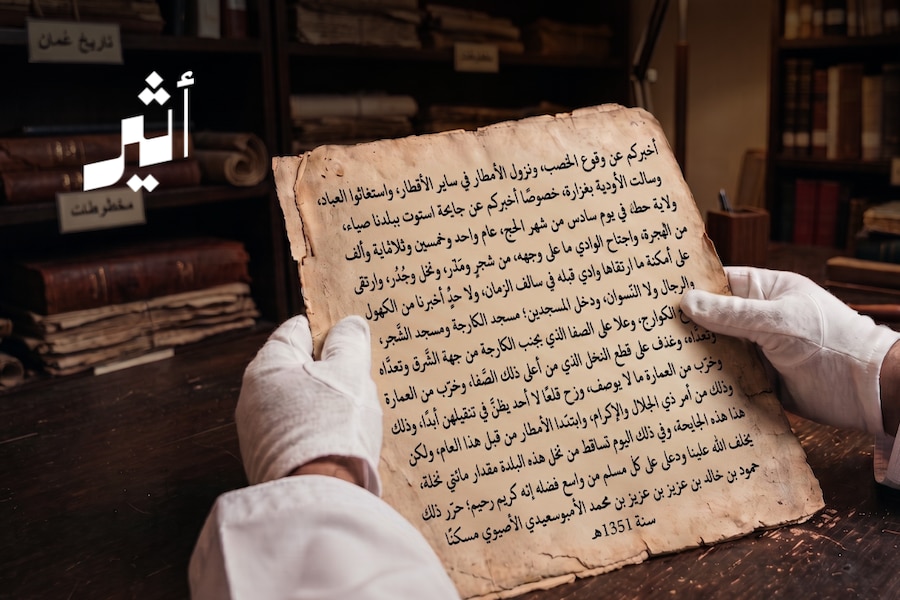 تاريخ عُمان
مخطوطات
أثير
مخطوطات
أخبركم عن وقوع الخصب، ونزول الأمطار في ساير الأقطار، واستغاثوا العباد،
وسالت الأودية بغزارة، خصوصًا أخبركم عن جايحة استوت ببلدنا صياء،
ولاية حطاط في يوم سادس من شهر الحج، عام واحد وخمسين وثلاثماية وألف
من الهجرة، واجتاح الوادي ما على وجهه، من شجرٍ ومَدَر، ونخل وجُدُر، وارتقى
على أمكنة ما ارتقاها وادي قبله في سالف الزمان، ولا حدٍ أخبرنا من الكهول
والرجال ولا النّسوان، ودخل المسجدين؛ مسجد الكارجة ومسجد الشَّجر،
الكوارج، وعلا على الصفا الذي بجنب الكارجة من جهة الشَّرق وتعدَّاه
وتعداه، وغذف على قطع النخل الذي من أعلى ذلك الصَّفا، وخرّب من العمارة
وخرّب من العمارة ما لا يوصف، وزح قلعًا لا أحد يظنّ في تنقيلهن أبدًا، وذلك
وذلك من أمر ذي الجلال والإكرام، وابتدا الأمطار من قبل هذا العام، ولكن
هذا هذه الجايحة، وفي ذلك اليوم تساقط من نخل هذه البلدة مقدار مائتي نخلة،
يخلف الله علينا ودعى على كل مسلم من واسع فضله إنه كريم رحيم؛ حرّر ذلك
حمود بن خالد بن عزيز بن عزيز بن محمد الأمبوسعيدي الأصيوي مسكنًا
سنة 1351هـ